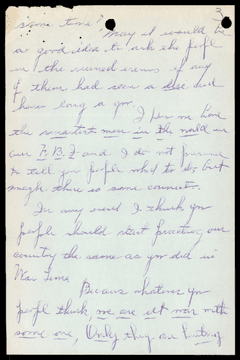 3
some time? May it would be
a good idea to ask the pepl
in the ruined areas if any
of them had seen a
know long a go.
I per me have
the smartest men in the world in
our F.B.I and I do not presume
to tell you people what to do but
maybe there is some connection.
In any event I think you
people should start practicing our
country the same as you did in
War Time.
Because whatever you
people think we are at war with
some one, Only they are